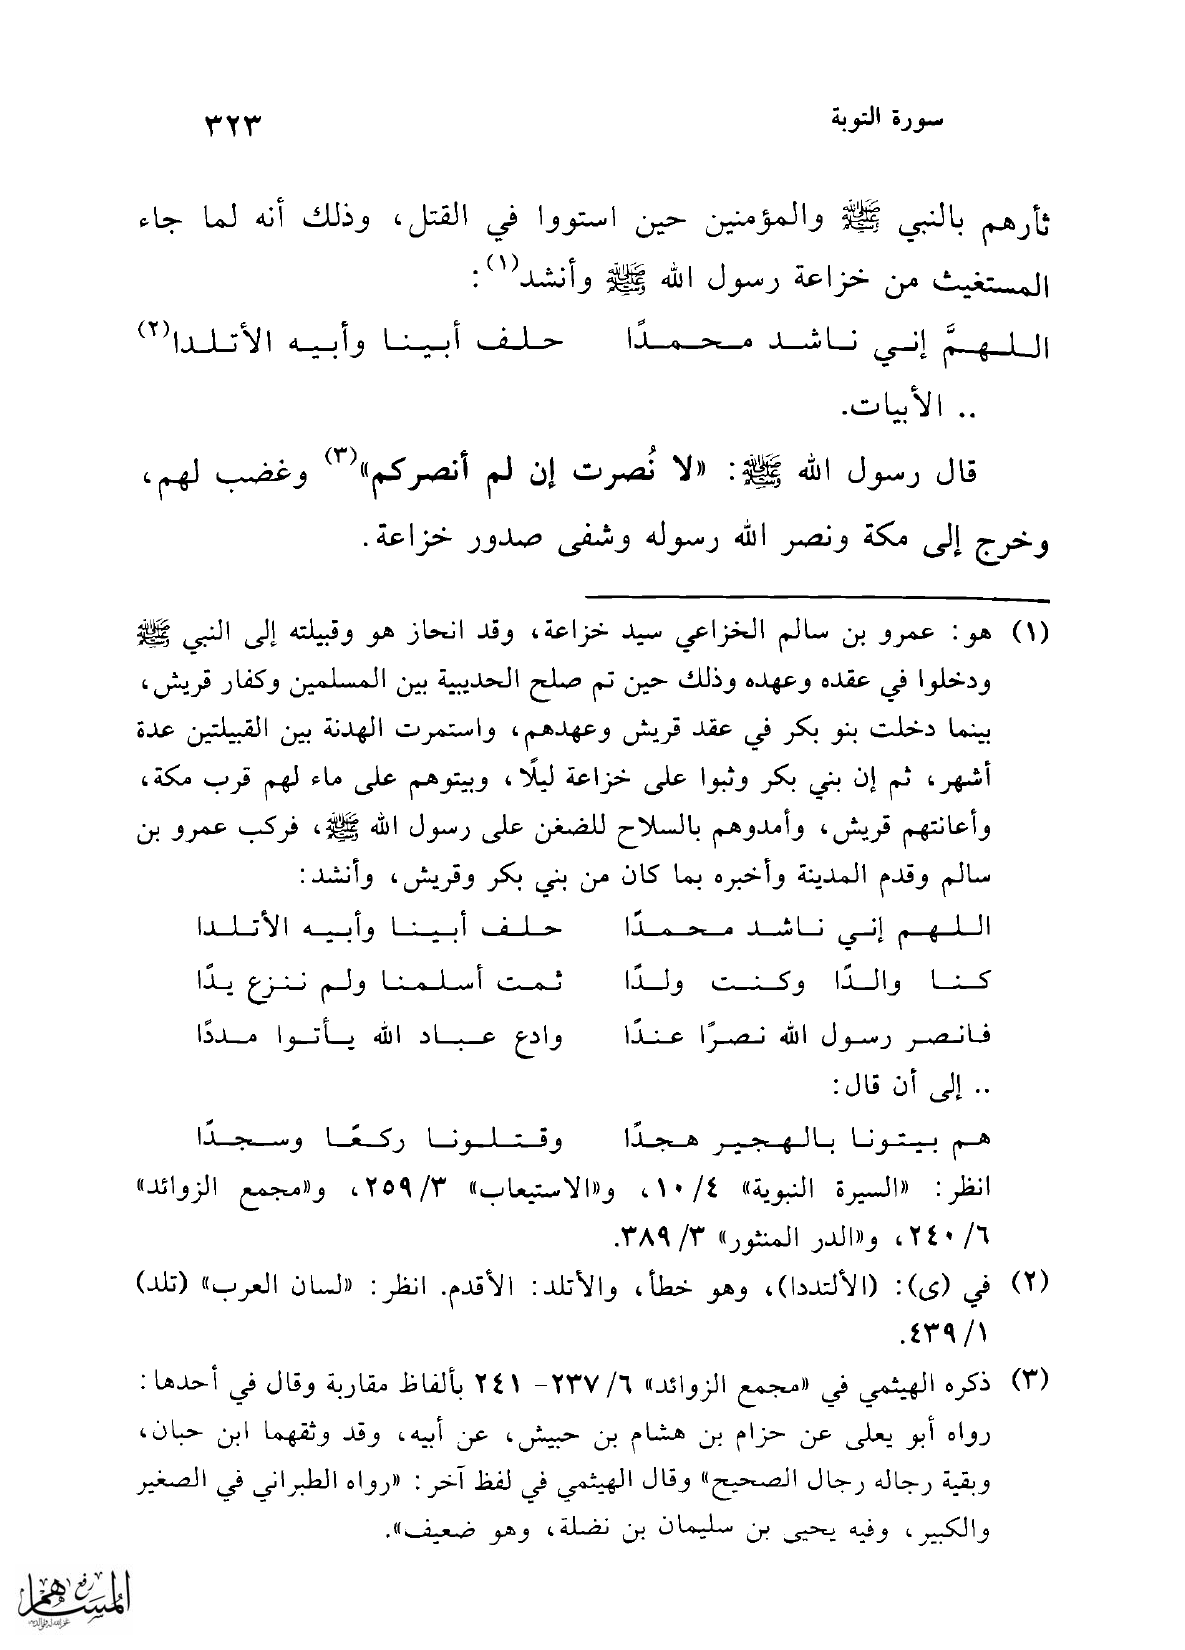 سورة التوبة ٣٢٣
ثأرهم بالنبي ﷺ والمؤمنين حين استووا في القتل، وذلك أنه لما جاء
المستغيث من خزاعة رسول الله ﷺ وأنشد(١):
اللهمَّ إني ناشد محمدًا حلف أبينا وأبيه الأتلدا(٢)
.. الأبيات.
قال رسول الله ﷺ: «لا نُصرت إن لم أنصركم»(٣) وغضب لهم،
وخرج إلى مكة ونصر الله رسوله وشفى صدور خزاعة.
(١) هو: عمرو بن سالم الخزاعي سيد خزاعة، وقد انحاز هو وقبيلته إلى النبي ﷺ
ودخلوا في عقده وعهده وذلك حين تم صلح الحديبية بين المسلمين وكفار قريش،
بينما دخلت بنو بكر في عقد قريش وعهدهم، واستمرت الهدنة بين القبيلتين عدة
أشهر، ثم إن بني بكر وثبوا على خزاعة ليلًا، وبيتوهم على ماء لهم قرب مكة،
وأعانتهم قريش، وأمدوهم بالسلاح للضغن على رسول الله ﷺ، فركب عمرو بن
سالم وقدم المدينة وأخبره بما كان من بني بكر وقريش، وأنشد:
اللهم إني ناشد محمدًا حلف أبينا وأبيه الأتلدا
كنا والدًا وكنت ولدًا ثمت أسلمنا ولم ننزع يدًا
فانصر رسول الله نصرًا عندًا وادع عباد الله يأتوا مددًا
.. إلى أن قال:
هم بيتونا بالهجير هجدًا وقتلونا ركعًا وسجدًا
انظر: «السيرة النبوية» ١٠/٤، و«الاستيعاب» ٢٥٩/٣، و«مجمع الزوائد»
٢٤٠/٦، و«الدر المنثور» ٣٨٩/٣.
(٢) في (ى): (الألتددا)، وهو خطأ، والأتلد: الأقدم. انظر: «لسان العرب» (تلد)
٤٣٩/١.
(٣) ذكره الهيثمي في «مجمع الزوائد» ٦/ ٢٣٧- ٢٤١ بألفاظ مقاربة وقال في أحدها:
رواه أبو يعلى عن حزام بن هشام بن حبيش، عن أبيه، وقد وثقهما ابن حبان،
وبقية رجاله رجال الصحيح» وقال الهيثمي في لفظ آخر: «رواه الطبراني في الصغير
والكبير، وفيه يحيى بن سليمان بن نضلة، وهو ضعيف».